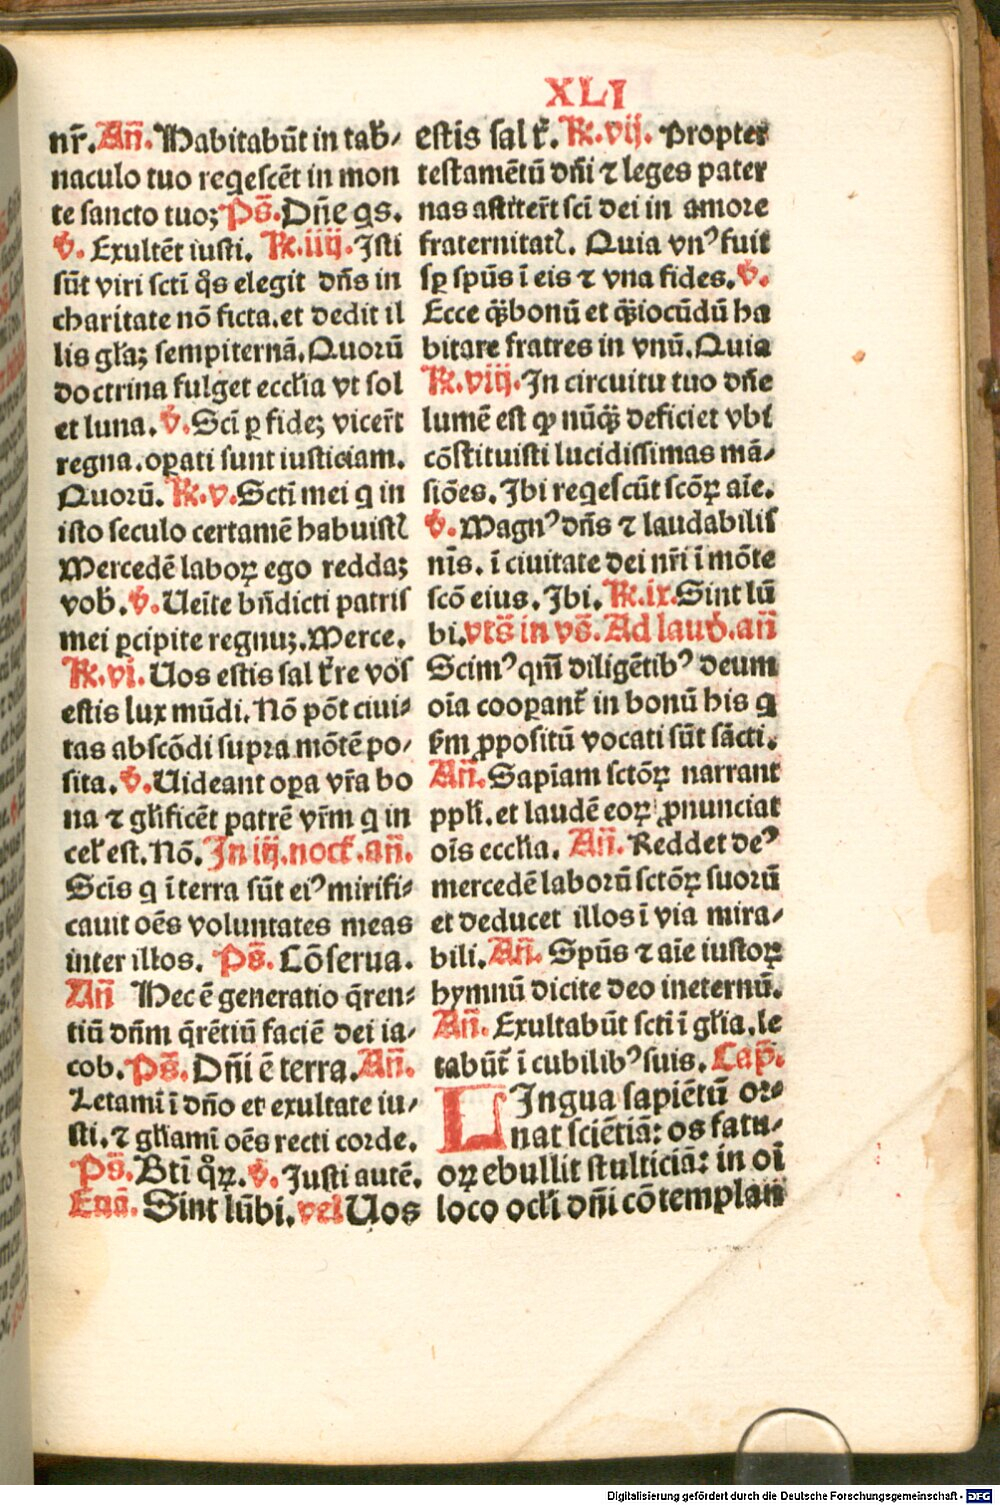 XLI
nr̄. An̄. Habitabūt in tab̄⸗
naculo tuo reqescēt in mon
te sancto tuoꝫ Ps̄. Dn̄e qs.
V̄. Exultēt iusti. R̄. iiij. Isti
sūt viri scti q̊s elegit dn̄s in
charitate nō ficta. et dedit il
lis gl̄aꝫ sempiternā. Quorū
doctrina fulget eccl̄ia vt sol
et luna. V̄. Sc̄i ꝑ fideꝫ vicer̄t
regna. oꝑati sunt iusticiam.
Quorū. R̄. v. Scti mei q in
isto seculo certamē habuistꝭ
Mercedē laboꝝ ego reddaꝫ
vob̄. V̄. Ueīte bn̄dicti patris
mei ꝑcipite regnuꝫ. Merce.
R̄. vi. Uos estis sal t̄re vos
estis lux mūdi. Nō pōt ciui⸗
tas abscōdi supra mōtē po⸗
sita. V̄. Uideant oꝑa vr̄a bo
na ⁊ gl̄ificēt patrē vr̄m q in
cel̄ est. Nō. In iij. noct̄. an̄.
Sc̄is q ī terra sūt eiꝰ mirifi⸗
cauit oēs voluntates meas
inter illos. Ps̄. Cōserua.
An̄ Hec ē generatio q̄ren⸗
tiū dn̄m q̄rētiū faciē dei ia⸗
cob. Ps̄. Dn̄i ē terra. An̄.
Letamī ī dn̄o et exultate iu⸗
sti. ⁊ gl̄iamī oēs recti corde.
Ps̄. Bt̄i q̊ꝝ. V̄. Justi autē.
Euā. Sint lūbi. vel Uos
estis sal t̄. R̄. vij. Propter
testamētū dn̄i ⁊ leges pater
nas astiter̄t sc̄i dei in amore
fraternitatꝭ. Quia vnꝰ fuit
sꝑ spūs ī eis ⁊ vna fides. V̄.
Ecce q̄ꝫ bonū et q̄ꝫ iocūdū ha
bitare fratres in vnū. Quia
R̄. viij. In circuitu tuo dn̄e
lumē est qd̄ nūq̄ꝫ deficiet vbi
cōstituisti lucidissimas mā⸗
siōes. Ibi reqescūt scōꝝ aīe.
V̄. Magnꝰ dn̄s ⁊ laudabilis
nīs. ī ciuitate dei nr̄i ī mōte
scō eius. Ibi. R̄. ix. Sint lū
bi. vts̄ in vs̄. Ad laud̄. an̄
Scimꝰ qm̄ diligētibꝰ deum
oīa cooꝑant̄ in bonū his q
ẜm ꝓpositū vocati sūt sācti.
An̄. Sapīam sctōꝝ narrant
ppl̄i. et laudē eoꝝ ꝓnunciat
oīs eccl̄ia. An̄. Reddet deꝰ
mercedē laborū sctōꝝ suorū
et deducet illos ī via mira⸗
bili. An̄. Spūs ⁊ aīe iustoꝝ
hymnū dicite deo ineternū.
An̄. Exultabūt scti ī gl̄ia. le
tabūt̄ ī cubilibꝰ suis. Cap̄.
LIngua sapiētū or⸗
nat sciētiā: os fatu⸗
oꝝ ebullit stulticiā: in oī
loco ocl̄i dn̄i cōtemplan
Digitalisierung gefördert durch die Deutsche Forschungsgemeinschaft - DFG